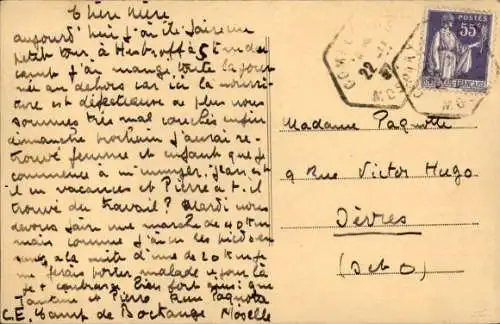 Chère Mère
aujourd'hui j'ai été faire un
petit tour à Hestroff à 5 km du
camp j'ai mangé toute la jour
née au dehors car ici la nourri
ture est défectueuse de plus nous
sommes très mal couchés enfin
dimanche prochain j'aurai re-
trouvé femme et enfant que je
commence à m'ennuyer. Jean est
il en vacances et Pierre a t. il
trouvé du travail? Mardi nous
devons faire une marche de 40 km
mais comme j'ai les pieds en
sang à la suite d'une de 20 km je
me ferais porter malade pour là
je t'embrasse bien fort ainsi que
et Pierre Paquotte
C.E. Camp de Bockange Moselle
Madame Paquotte
9 Rue Victor Hugo
Sèvres
(S et O)
22
37
MOSELLE
POSTES
55c